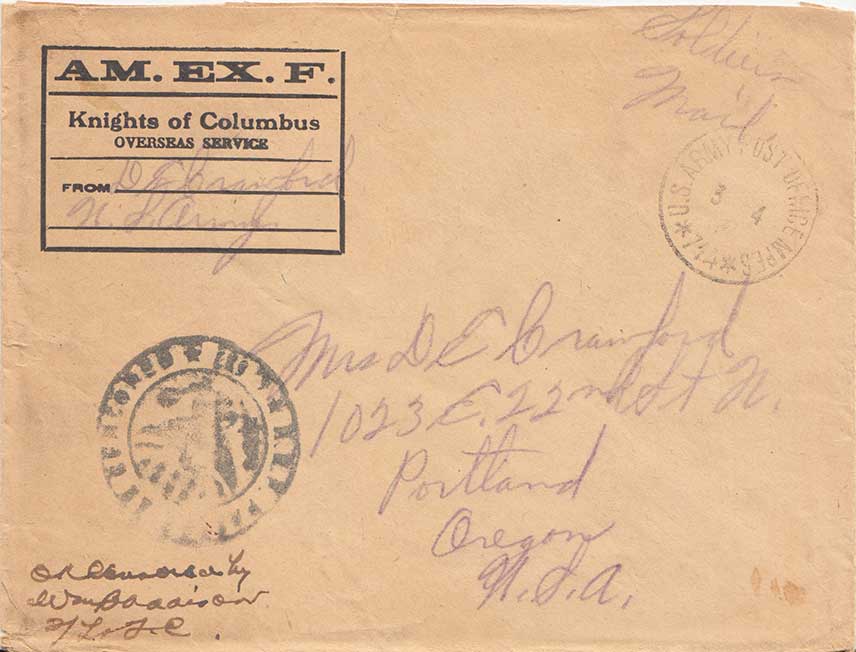 AM. EX. F.
Knights of Columbus
OVERSEAS SERVICE
FROM D E Crawford
U. S. Army
Soldiers
Mail
U.S. ARMY POST OFFICE MPES
3 4
Mrs D E Crawford
1023 E. 22nd St N.
Portland
Oregon
U. S. A.
OK Censored by